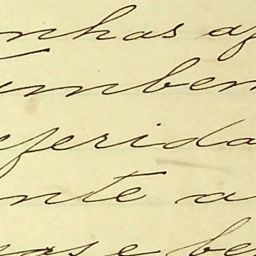 nhas af
umben
eferida
nte a
nas e be